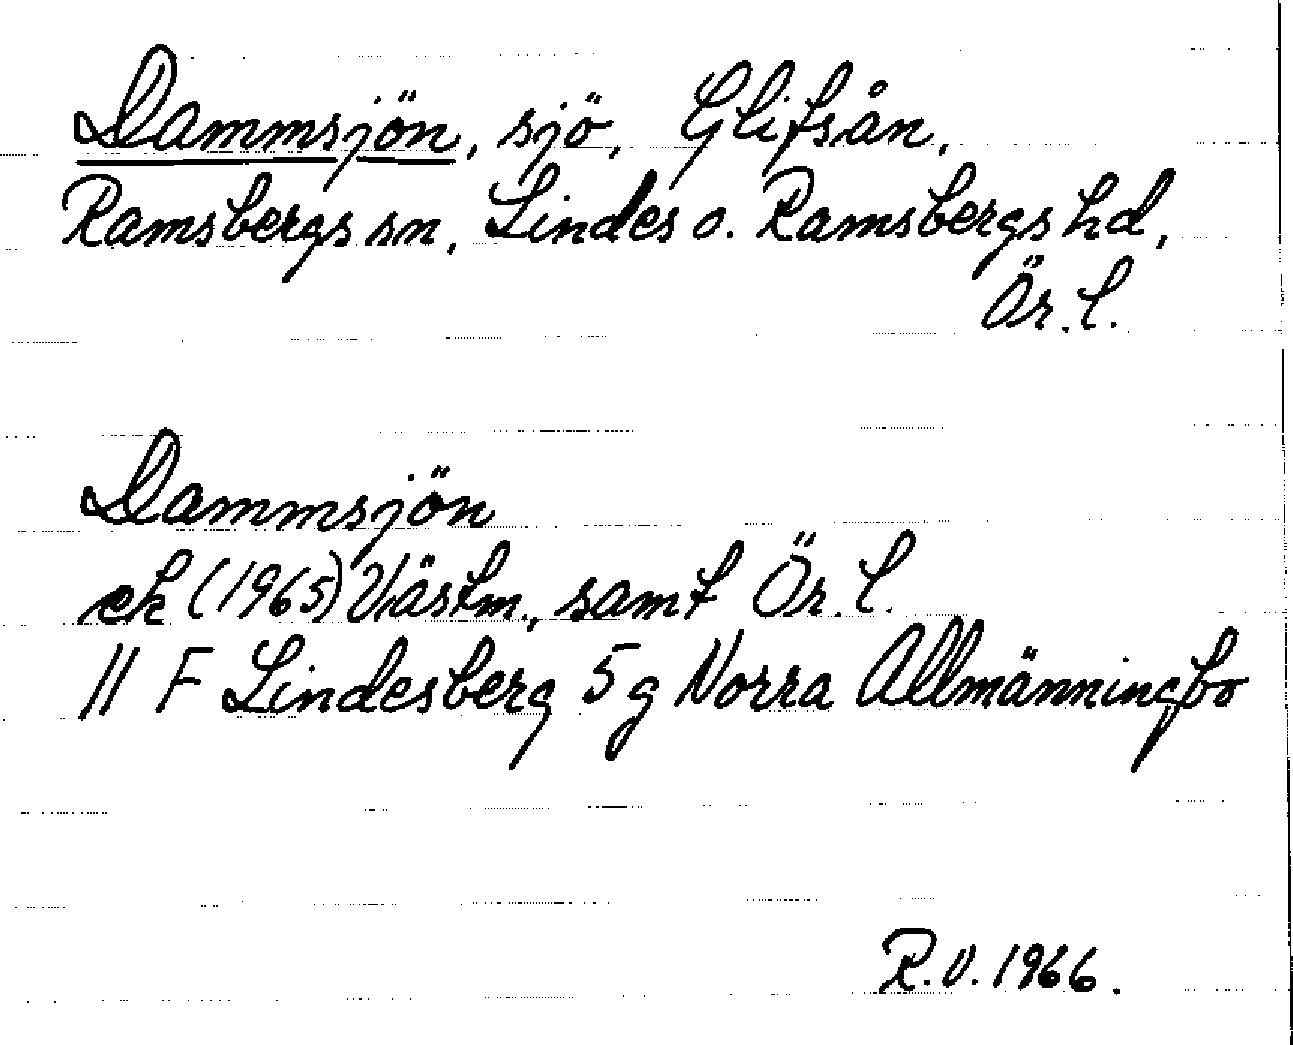 Dammsjön, sjö, Glifsån,
Ramsbergs sn, Lindes o. Ramsbergs hd,
Ör. l.
Dammsjön
ek (1965) Västm., samt Ör. l.
11 F Lindesberg 5 g Norra Allmänningbo
R.V. 1966.